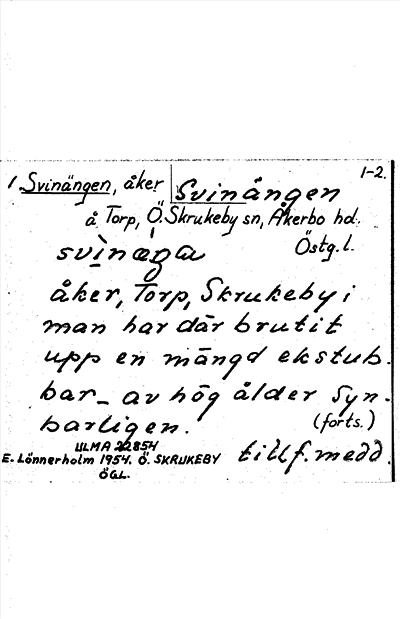 1-2.
1. Svinängen, åker
Svinängen
å Torp, Ö. Skrukeby sn, Åkerbo hd.
Östg.l.
åker, Torp, Skrukeby i
man har där brutit
upp en mängd ekstub-
bar – av hög ålder syn-
barligen.
(forts.)
ULMA 22854
E. Lönnerholm 1954. Ö. SKRUKEBY
ÖGL.
tillf. medd.